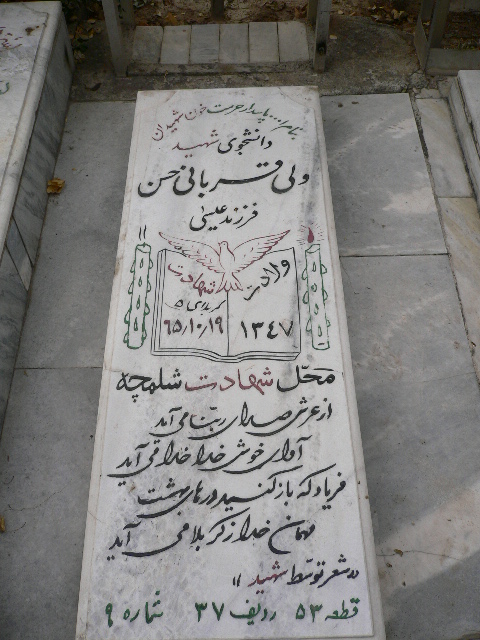 بنام ... پاسدار حرمت خون شهیدان
دانشجوی شهید
ولی قربانی حسن
فرزند عیسی
ولادت
۱۳۴۷
شهادت
کربلای ۵
۶۵/۱۰/۱۹
محل شهادت شلمچه
از عرش صدای ربنا می آید
آوای خوش خدا خدا می آید
فریاد که باز کنید درهای بهشت
مهمان خدا ز کربلا می آید
"شعر توسط شهید"
قطعه ۵۳ ردیف ۳۷ شماره ۹